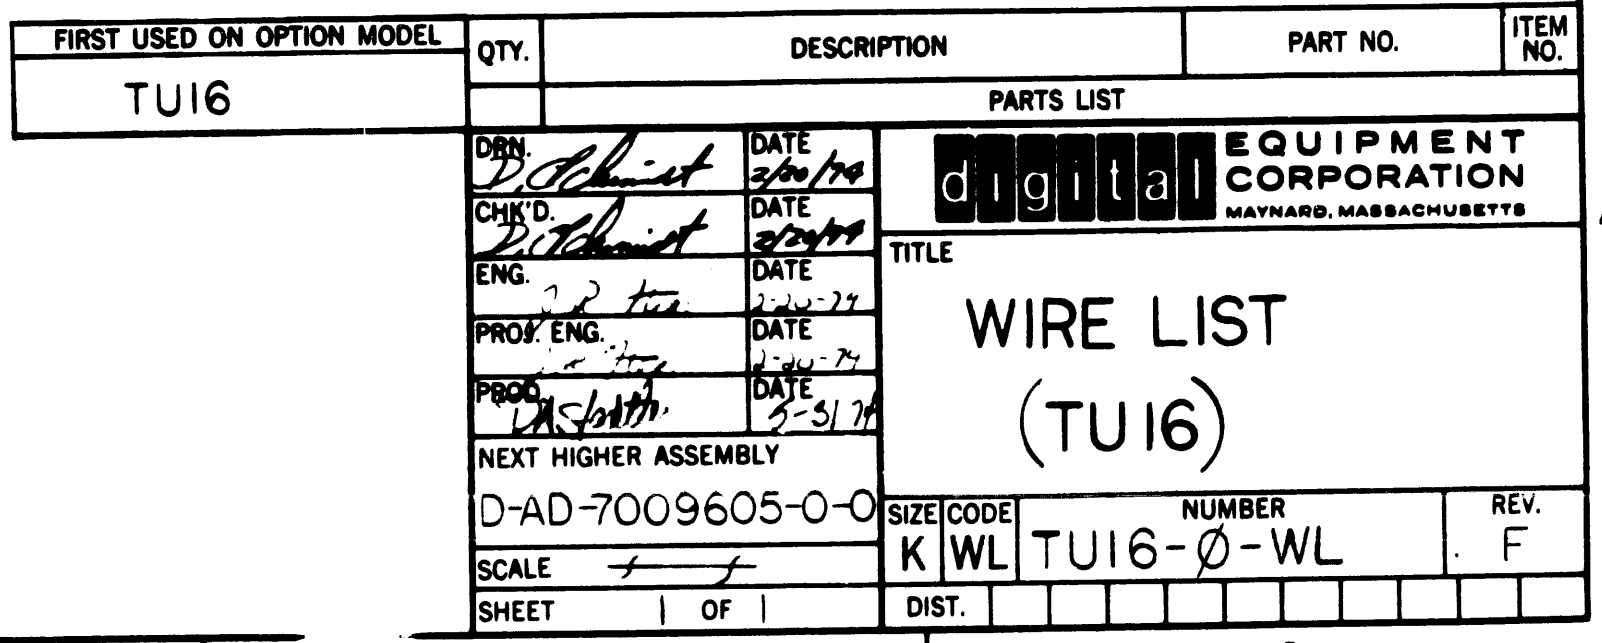 FIRST USED ON OPTION MODEL
TU16
QTY.
DESCRIPTION
PART NO.
ITEM NO.
PARTS LIST
DRN.
D. Schmidt
DATE
2/20/74
CHK'D.
D. Schmidt
DATE
2/20/74
ENG.
DATE
2-20-74
PROJ. ENG.
DATE
2-20-74
PROD.
DATE
NEXT HIGHER ASSEMBLY
D-AD-7009605-0-0
SCALE
SHEET 1 OF 1
digital EQUIPMENT
CORPORATION
MAYNARD, MASSACHUSETTS
TITLE
WIRE LIST
(TU16)
SIZE
K
CODE
WL
NUMBER
TU16-Ø-WL
REV.
F
DIST.